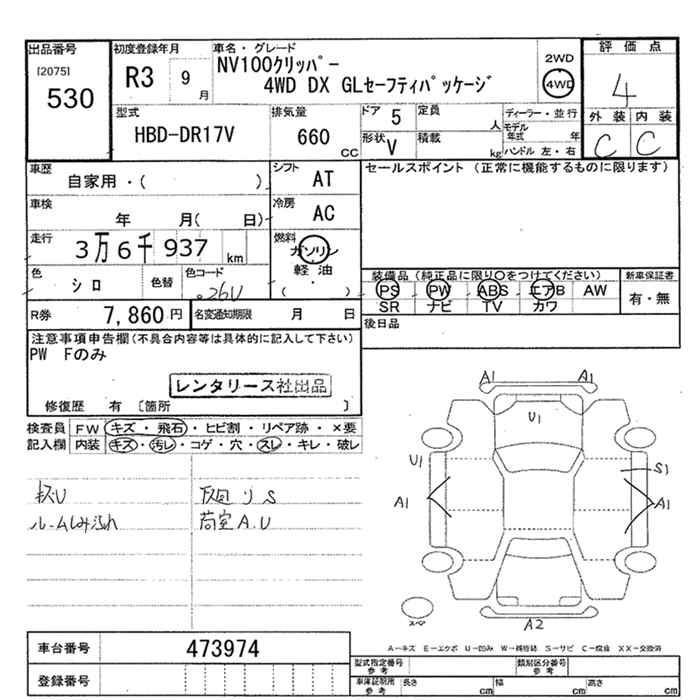 出品番号 初度登録年月 車名・グレード 評価点
[2075] R3 9月 NV100クリッパー 2WD
530 4WD DX GLセーフティパッケージ 4WD 4
型式 排気量 ドア 5 定員 人 ディーラー・並行 外装 内装
HBD-DR17V 660 CC 形状 V 積載 kg モデル年式 年 C C
ハンドル 左・右
車歴 シフト セールスポイント (正常に機能するものに限ります)
自家用・( ) AT
車検 冷房
年 月( 日) AC
走行 燃料
3万6千937 km ガソリン
軽油
色 色替 色コード ( ・ )
シロ 26U
装備品 (純正品に限り○をつけてください) 新車保証書
PS PW ABS エアB AW 有・無
SR ナビ TV カワ
R券 7,860円 名変通知期限 月 日 後日品
注意事項申告欄(不具合内容等は具体的に記入して下さい)
PW Fのみ
レンタリース社出品
修復歴 有 〔箇所 〕
検査員 FW キズ・飛石・ヒビ割・リペア跡・×要
記入欄 内装 キズ・汚レ・コゲ・穴・スレ・キレ・破レ
ルームしみ汚れ 荷室A.U
A1 A1
U1
U1 S1
A1 A1
スペア A2
A-キズ E-エクボ U-凹み W-補修跡 S-サビ C-腐食 XX-交換済
車台番号 473974
登録番号
型式指定番号 参考 類別区分番号 参考
車庫証明用 参考 長さ cm 幅 cm 高さ cm